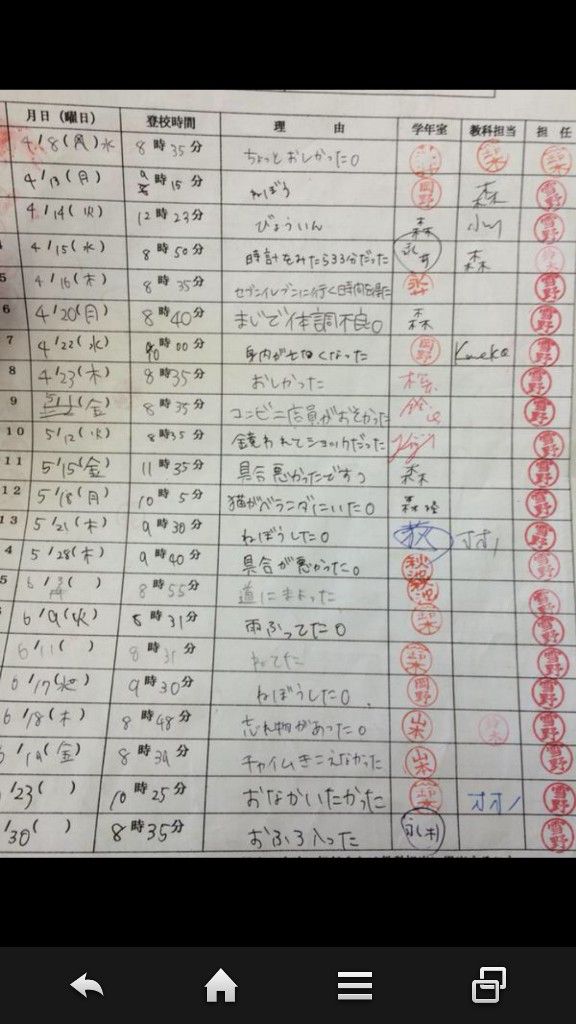 月日(曜日) 登校時間 理由 学年室 教科担当 担任
4/8(月)水 8時35分 ちょっとおしかった。
4/13(月) 9時15分 ねぼう 岡野 森 雪野
4/14(火) 12時23分 びょういん 森 小川 雪野
4/15(水) 8時50分 時計をみたら33分だった 森
5 4/16(木) 8時35分 セブンイレブンに行く時間を 雪野
6 4/20(月) 8時40分 まじで体調不良。 森 雪野
7 4/22(水) 10時00分 身内が亡くなった 岡野 Kaneko 雪野
8 4/23(木) 8時35分 おしかった 雪野
9 (金) 8時35分 コンビニ店員がおそかった 雪野
10 5/12(火) 8時35分 鏡われてショックだった 雪野
11 5/15(金) 11時35分 具合悪かったですっ 森 雪野
12 5/18(月) 10時5分 猫がベランダにいた。 雪野
13 5/21(木) 9時30分 ねぼうした。 荻 オオノ 雪野
4 5/28(木) 9時40分 具合が悪かった。 雪野
5 6/3( ) 8時55分 道にまよった 雪野
6/9(火) 8時31分 雨ふってた。 雪野
6/11( ) 8時31分 ねてた 雪野
6/17(水) 9時30分 ねぼうした。 岡野 雪野
6/18(木) 8時48分 忘れ物があった。 山木 雪野
6/19(金) 8時39分 チャイムきこえなかった 山木 雪野
/23( ) 10時25分 おなかいたかった オオノ 雪野
/30( ) 8時35分 おふろ入った 雪野